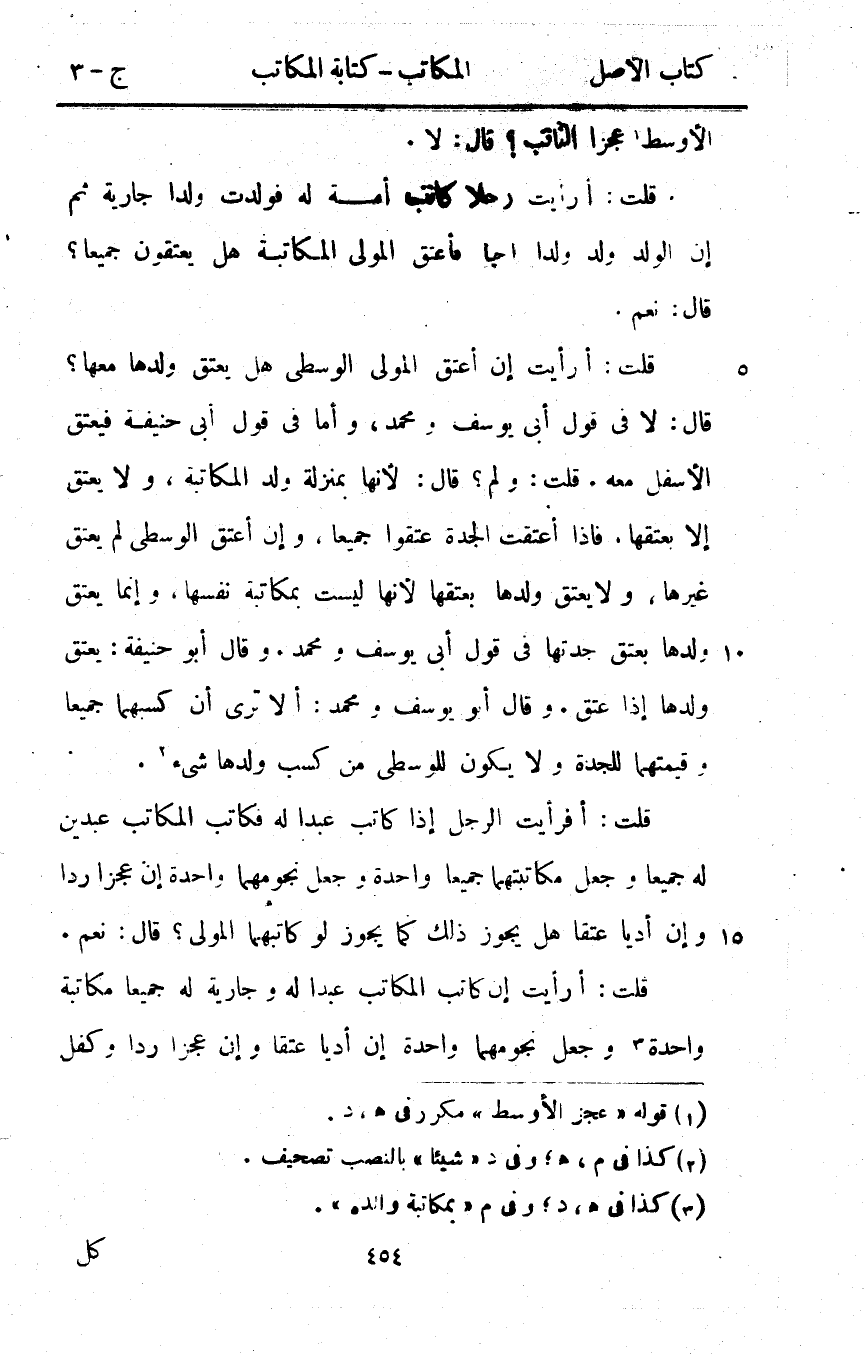 كتاب الأصل المكاتب - كتابة المكاتب ج - ٣
الأوسط١ عجزا ؟ قال: لا .
قلت: أ رأيت رجلا كاتب أمــة له فولدت ولدا جارية ثم
إن الولد ولد ولدا فأعتق المولى المكاتبة هل يعتقون جميعا؟
قال: نعم .
٥ قلت: أ رأيت إن أعتق المولى الوسطى هل يعتق ولدها معها؟
قال: لا فى قول أبى يوسف و محمد، و أما فى قول أبى حنيفة فيعتق
الأسفل معه . قلت: و لم؟ قال: لأنها بمنزلة ولد المكاتبة ، و لا يعتق
إلا بعتقها . فاذا أعتقت الجدة عتقوا جميعا ، و إن أعتق الوسطى لم يعتق
غيرها ، و لايعتق ولدها بعتقها لأنها ليست بمكاتبة نفسها ، و إنما يعتق
١٠ ولدها بعتق جدتها فى قول أبى يوسف و محمد . و قال أبو حنيفة: يعتق
ولدها إذا عتق . و قال أبو يوسف و محمد: ألا ترى أن كسبهما جميعا
و قيمتهما للجدة و لا يكون للوسطى من كسب ولدها شىء٢ .
قلت: أ فرأيت الرجل إذا كاتب عبدا له فكاتب المكاتب عبدين
له جميعا و جعل مكاتبتهما جميعا واحدة و جعل نجومهما واحدة إن عجزا ردا
١٥ و إن أديا عتقا هل يجوز ذلك كما يجوز لو كاتبهما المولى؟ قال: نعم .
قلت: أ رأيت إن كاتب المكاتب عبدا له و جارية له جميعا مكاتبة
واحدة٣ و جعل نجومهما واحدة إن أديا عتقا و إن عجزا ردا و كفل
(١) قوله « عجز الأوسط » مكرر فى ه ، د .
(٢) كذا فى م ، ه ؛ و فى د « شيئا » بالنصب تصحيف .
(٣) كذا فى ه ، د ؛ و فى م « بمكاتبة » .
٤٥٤ كل